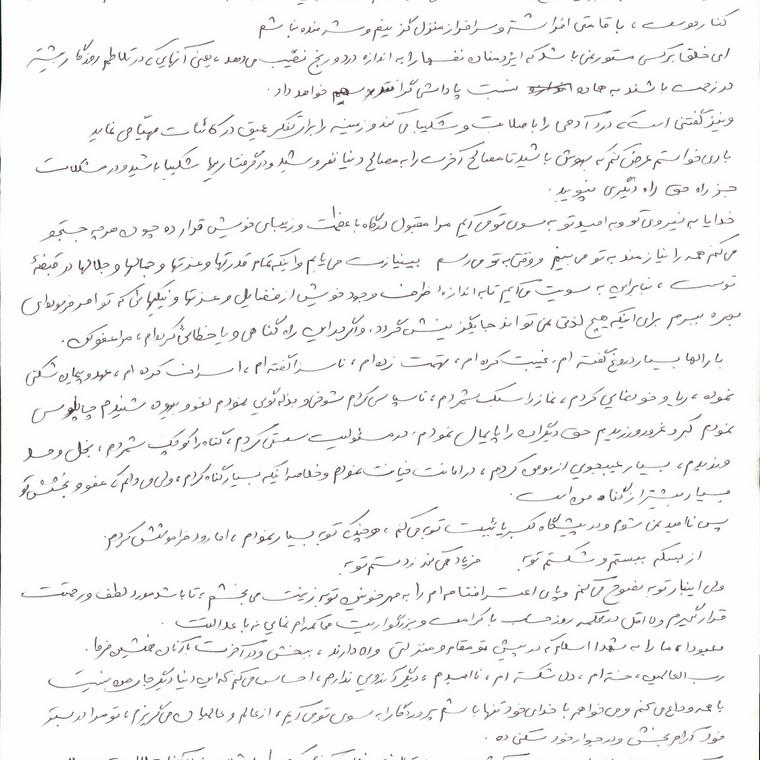 کنار دوست، با قامتی افراشته و سرافراز منزل گزینیم و شرمنده نباشم
ای خلق بر کسی مستور نمی باشد که ایزد منان نفسها را به اندازه درد و رنج نصیب می دهد، یعنی آنهایی که در تلاطم روزگار بیشتر
در زحمت باشند به همان نسبت پاداشی گرانقدر خواهد داد.
و نیز گفتنی است که درد آدمی را با صلابت و شکیبا می کند و زمینه را برای تفکر عمیق در کائنات مهیا می نماید
باری خواستم عرض کنم که بهوش باشید تا مصالح آخرت را به مصالح دنیا نفروشید و در گرفتاریها شکیبا باشید و در مشکلات
جز راه حق راه دیگری نپوئید.
خدایا به نیروی تو و به امید تو به سوی تو می آیم مرا مقبول درگاه با عظمت و زیبای خویش قرار ده چون هر چه جستجو
می کنم همه را نیازمند به تو می بینم و وقتی به تو می رسم بی نیازت می یابم و اینکه تمام قدرتها و عزتها و جمالها و جلالها در قبضهٔ
توست، بنابراین به سویت می آیم تا به اندازهٔ ظرف وجود خویش از فضایل و عزتها و نیکیهائی که تو امر فرموده ای
بهره ببرم برای اینکه هیچ لذتی نمی تواند جایگزینش گردد. و اگر در این راه گناهی و یا خطائی کرده ام، مرا عفو کن.
بارالها بسیار دروغ گفته ام، غیبت کرده ام، تهمت زده ام، ناسزا گفته ام، اسراف کرده ام، عهد و پیمان شکنی
نموده، ریا و خودنمایی کردم، نماز را سبک شمردم، ناسپاسی کردم شوخی و بذله گوی نمودم لغو و بیهوده شنیدم چاپلوسی
نمودم کبر و غرور ورزیدم حق دیگران را پایمال نمودم. در مسئولیت سستی کردم، گناه را کوچک شمردم، بخل و حسد
ورزیدم، بسیار عیبجوی از مومن کردم، در امانت خیانت نمودم و خلاصه اینکه بسیار گناه کرام، ولی می دانم که عفو و بخشش تو
بسیار بیشتر از گناه من است.
پس ناامید نمی شوم و در پیشگاه کبریائیت توبه می کنم، هر چند که توبه بسیار نمودم، اما زود فراموشش کردم.
از بسکه ببستم و شکستم توبه فریاد همی کند ز دستم توبه
ولی اینبار توبه نصوح می کنم و پای اعترافنامه ام را به مهر خونین توبه زینت می بخشم، تا باشد مورد لطف و رحمتت
قرار گیرم و لااقل در محکمه روز حساب با کرامت و بزرگواریت محاکمه ام نمای نه با عدالتت.
معبودا، ما را به شهدا اسلام که در پیش تو مقام و منزلتی والا دارند، ببخش و در آخرت با آنان همنشین فرما.
رب العالمین، خسته ام، دل شکسته ام، ناامیدم، دیگر آرزویی ندارم، احساس می کنم که این دنیا دیگر جای من نیست
با همه وداع می کنم و می خواهم با خدای خود تنها باشم پروردگارا به سوی تو می آیم، از عالم و عالمیان می گریزم، تو مرا در بستر
خود آرام بخش و در جوار خود سکنی ده.